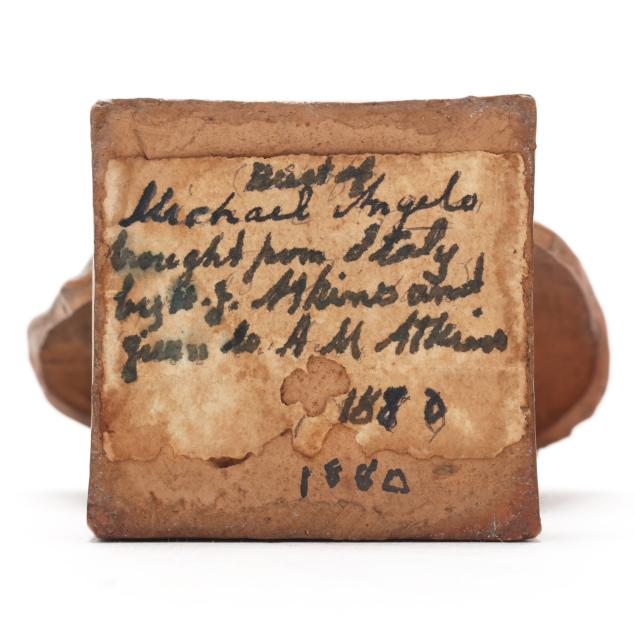 Bust of
Michael Angelo
bought from Italy
by W. J. Atkins and
given to A M Atkins
1880
1880